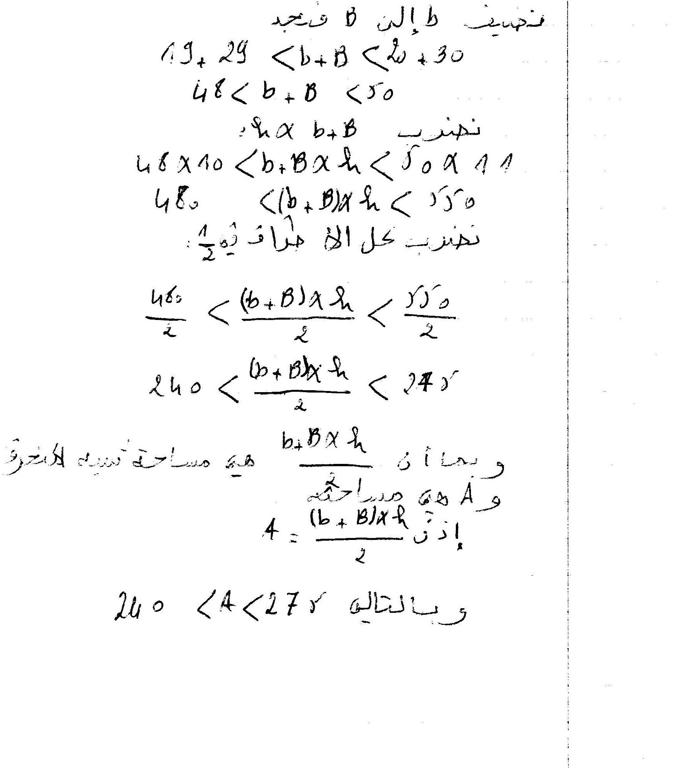 نضيف b إلى B فنجد
19+29 <b+B <20+30
48< b+B <50
نضرب b+B × h:
48×10 <b+B×h< 50×11
480 <(b+B)×h< 550
نضرب كل الأطراف في 1/2:
480/2 < (b+B)×h/2 < 550/2
240 < (b+B)×h/2 < 275
وبما أن b+B×h/2 هي مساحة شبه المنحرف
و A هي مساحته
إذن A = (b+B)×h/2
وبالتالي 240 <A<275